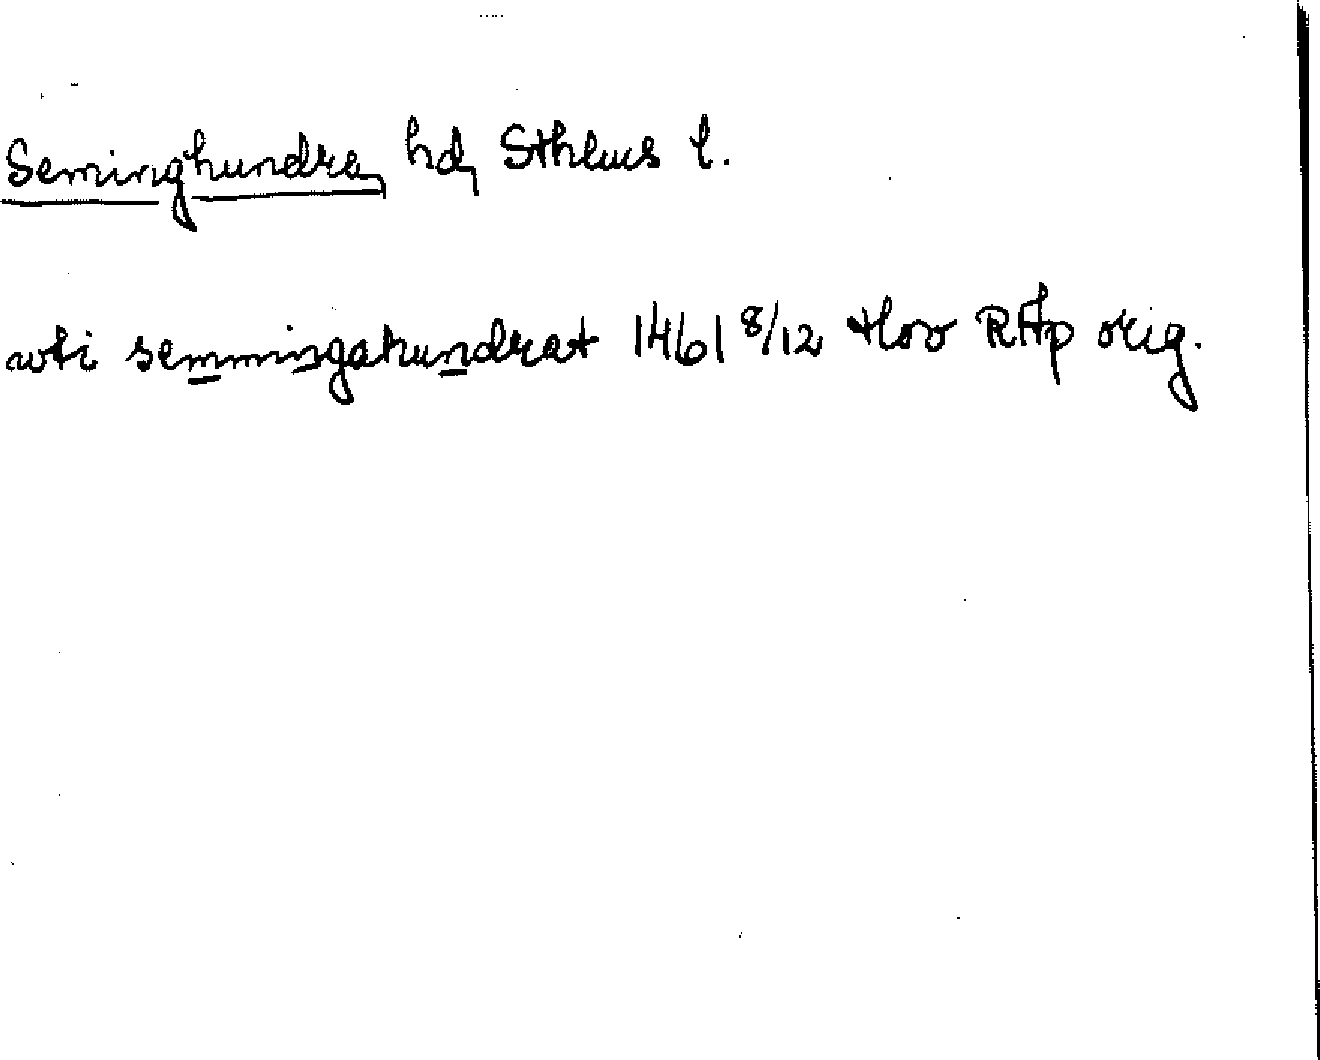 Seminghundra hd, Sthlms l.
wti semmingahundrat 1461 8/12 Hov RAp orig.